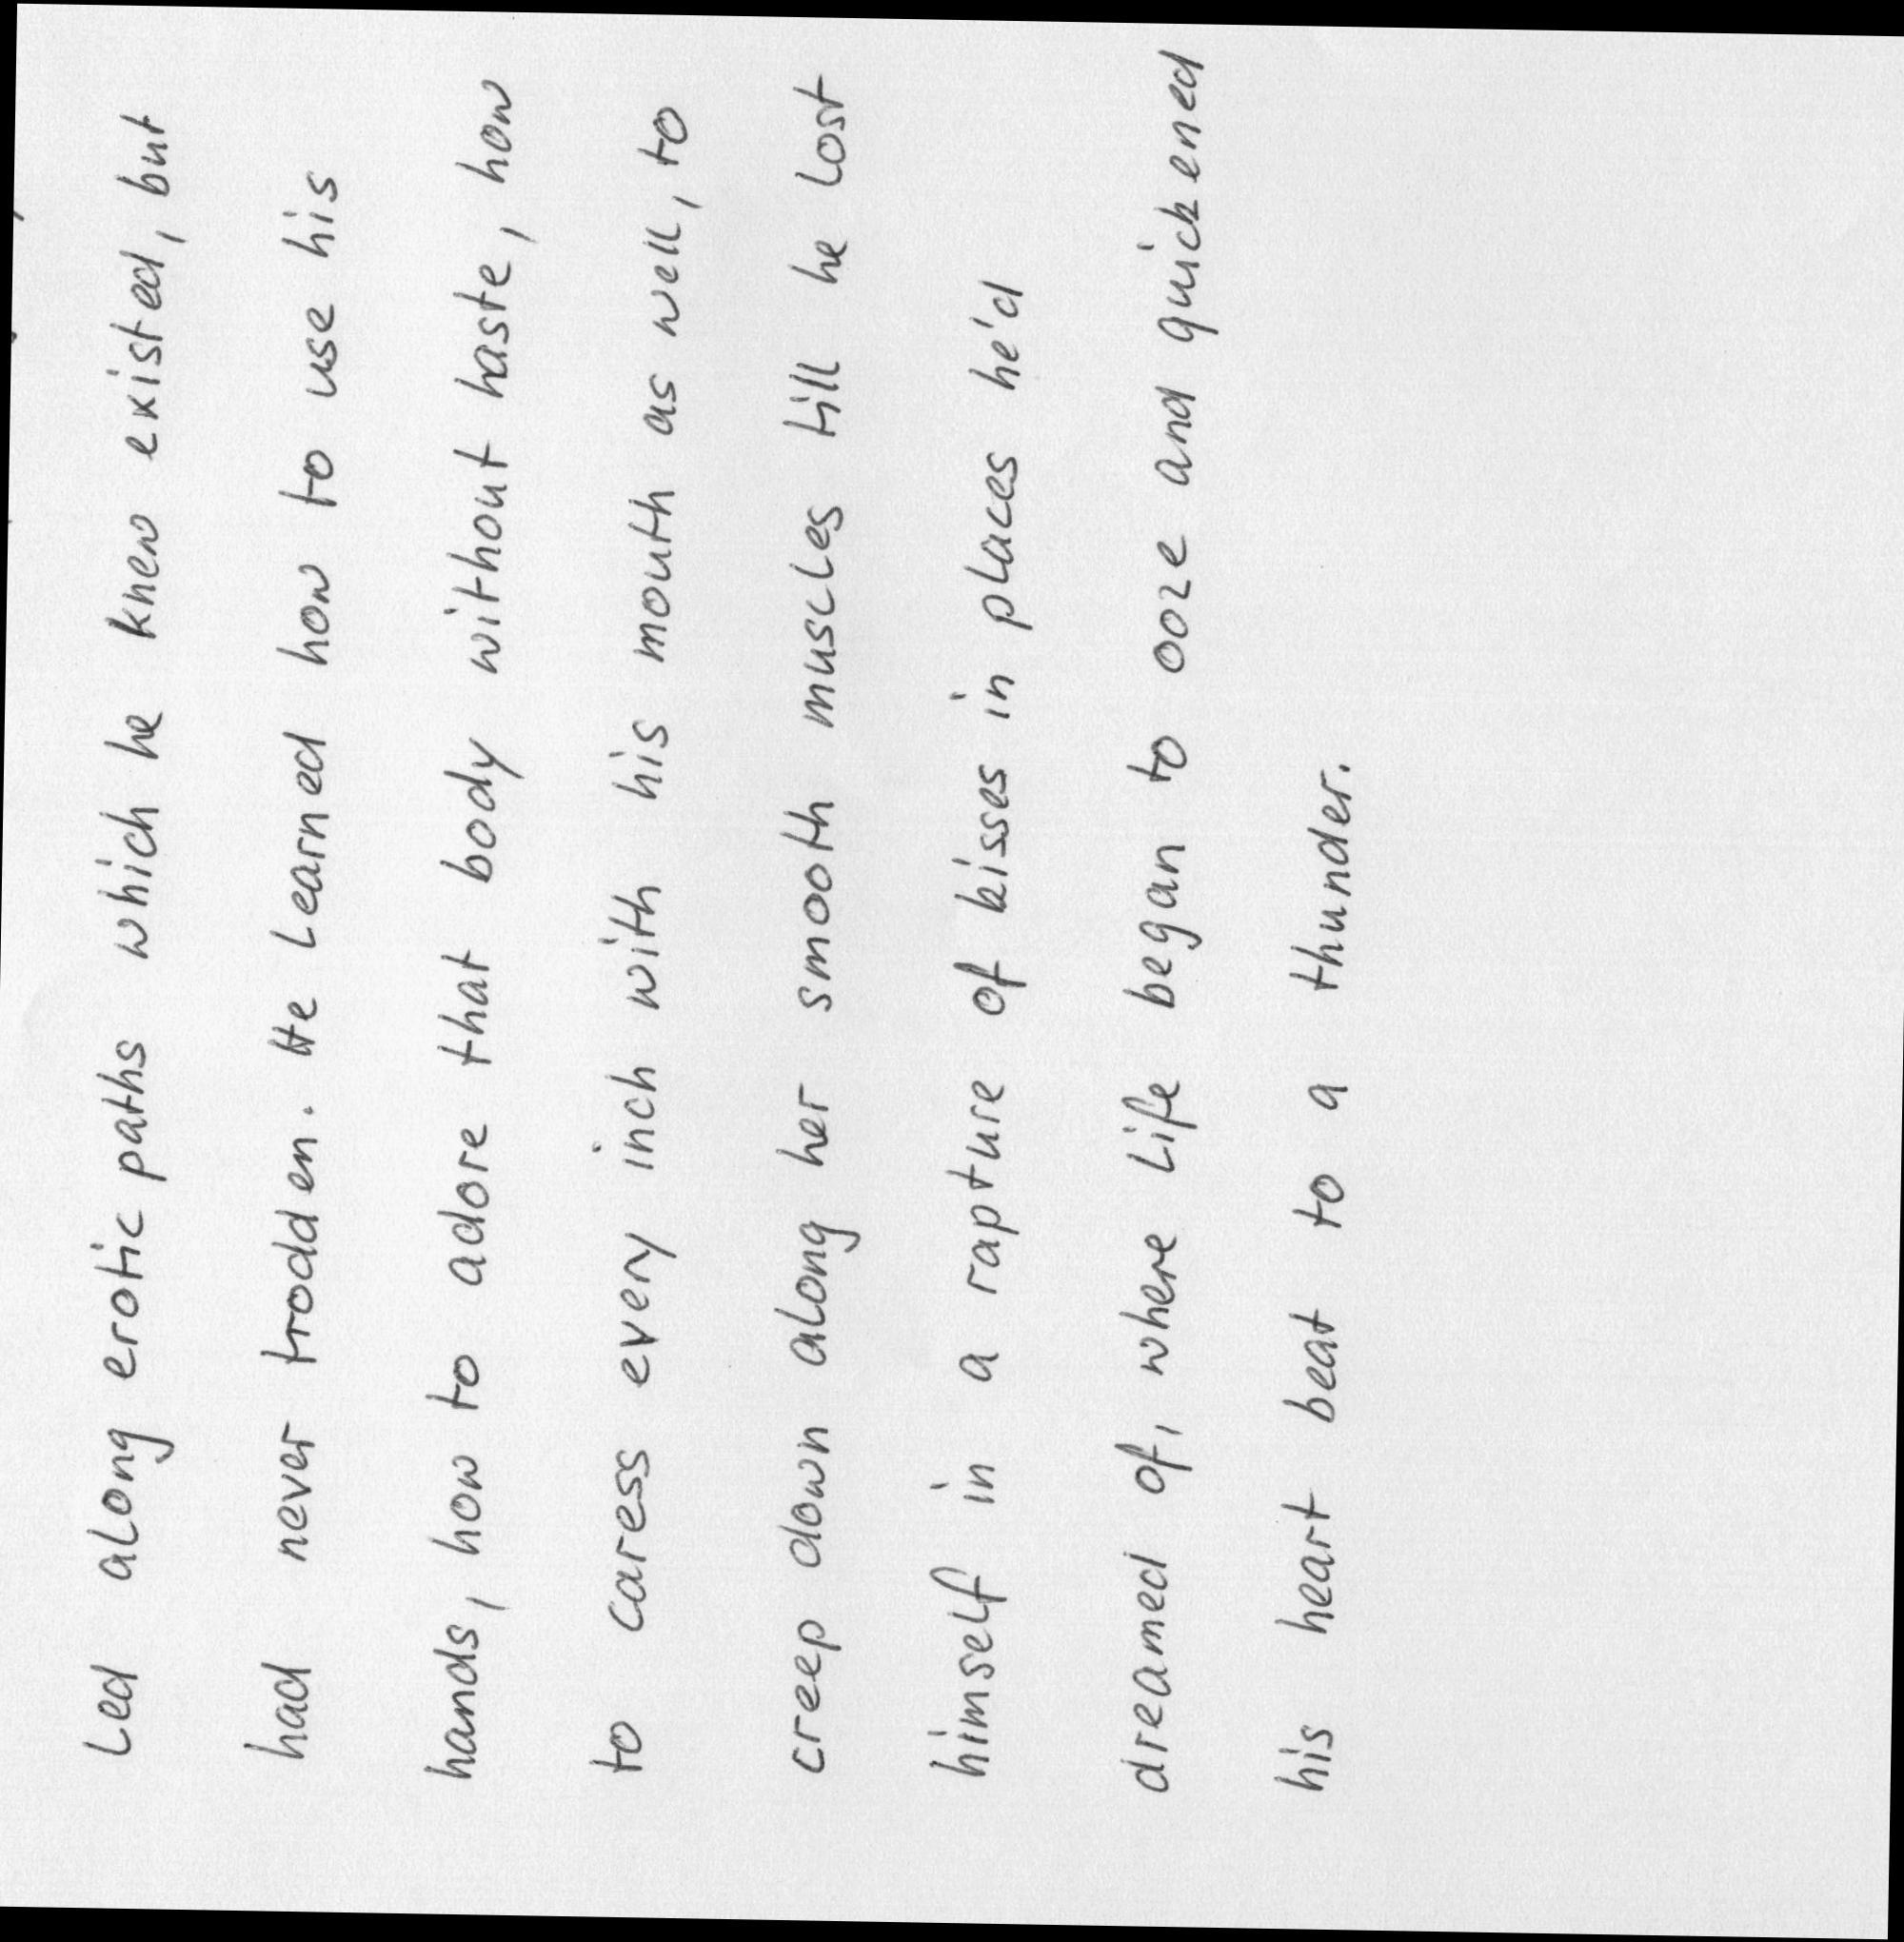 Led along erotic paths which he knew existed, but
had never trodden. He learned how to use his
hands, how to adore that body without haste, how
to caress every inch with his mouth as well, to
creep down along her smooth muscles till he lost
himself in a rapture of kisses in places he'd
dreamed of, where life began to ooze and quickened
his heart beat to a thunder.